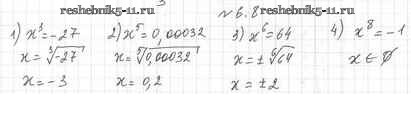 reshebnik5-11.ru
reshebnik5-11.ru
№6.8
1) x³=-27
x=∛-27
x=-3
2) x⁵=0,00032
x=⁵√0,00032
x=0,2
3) x⁶=64
x=±⁶√64
x=±2
4) x⁸=-1
x∈∅